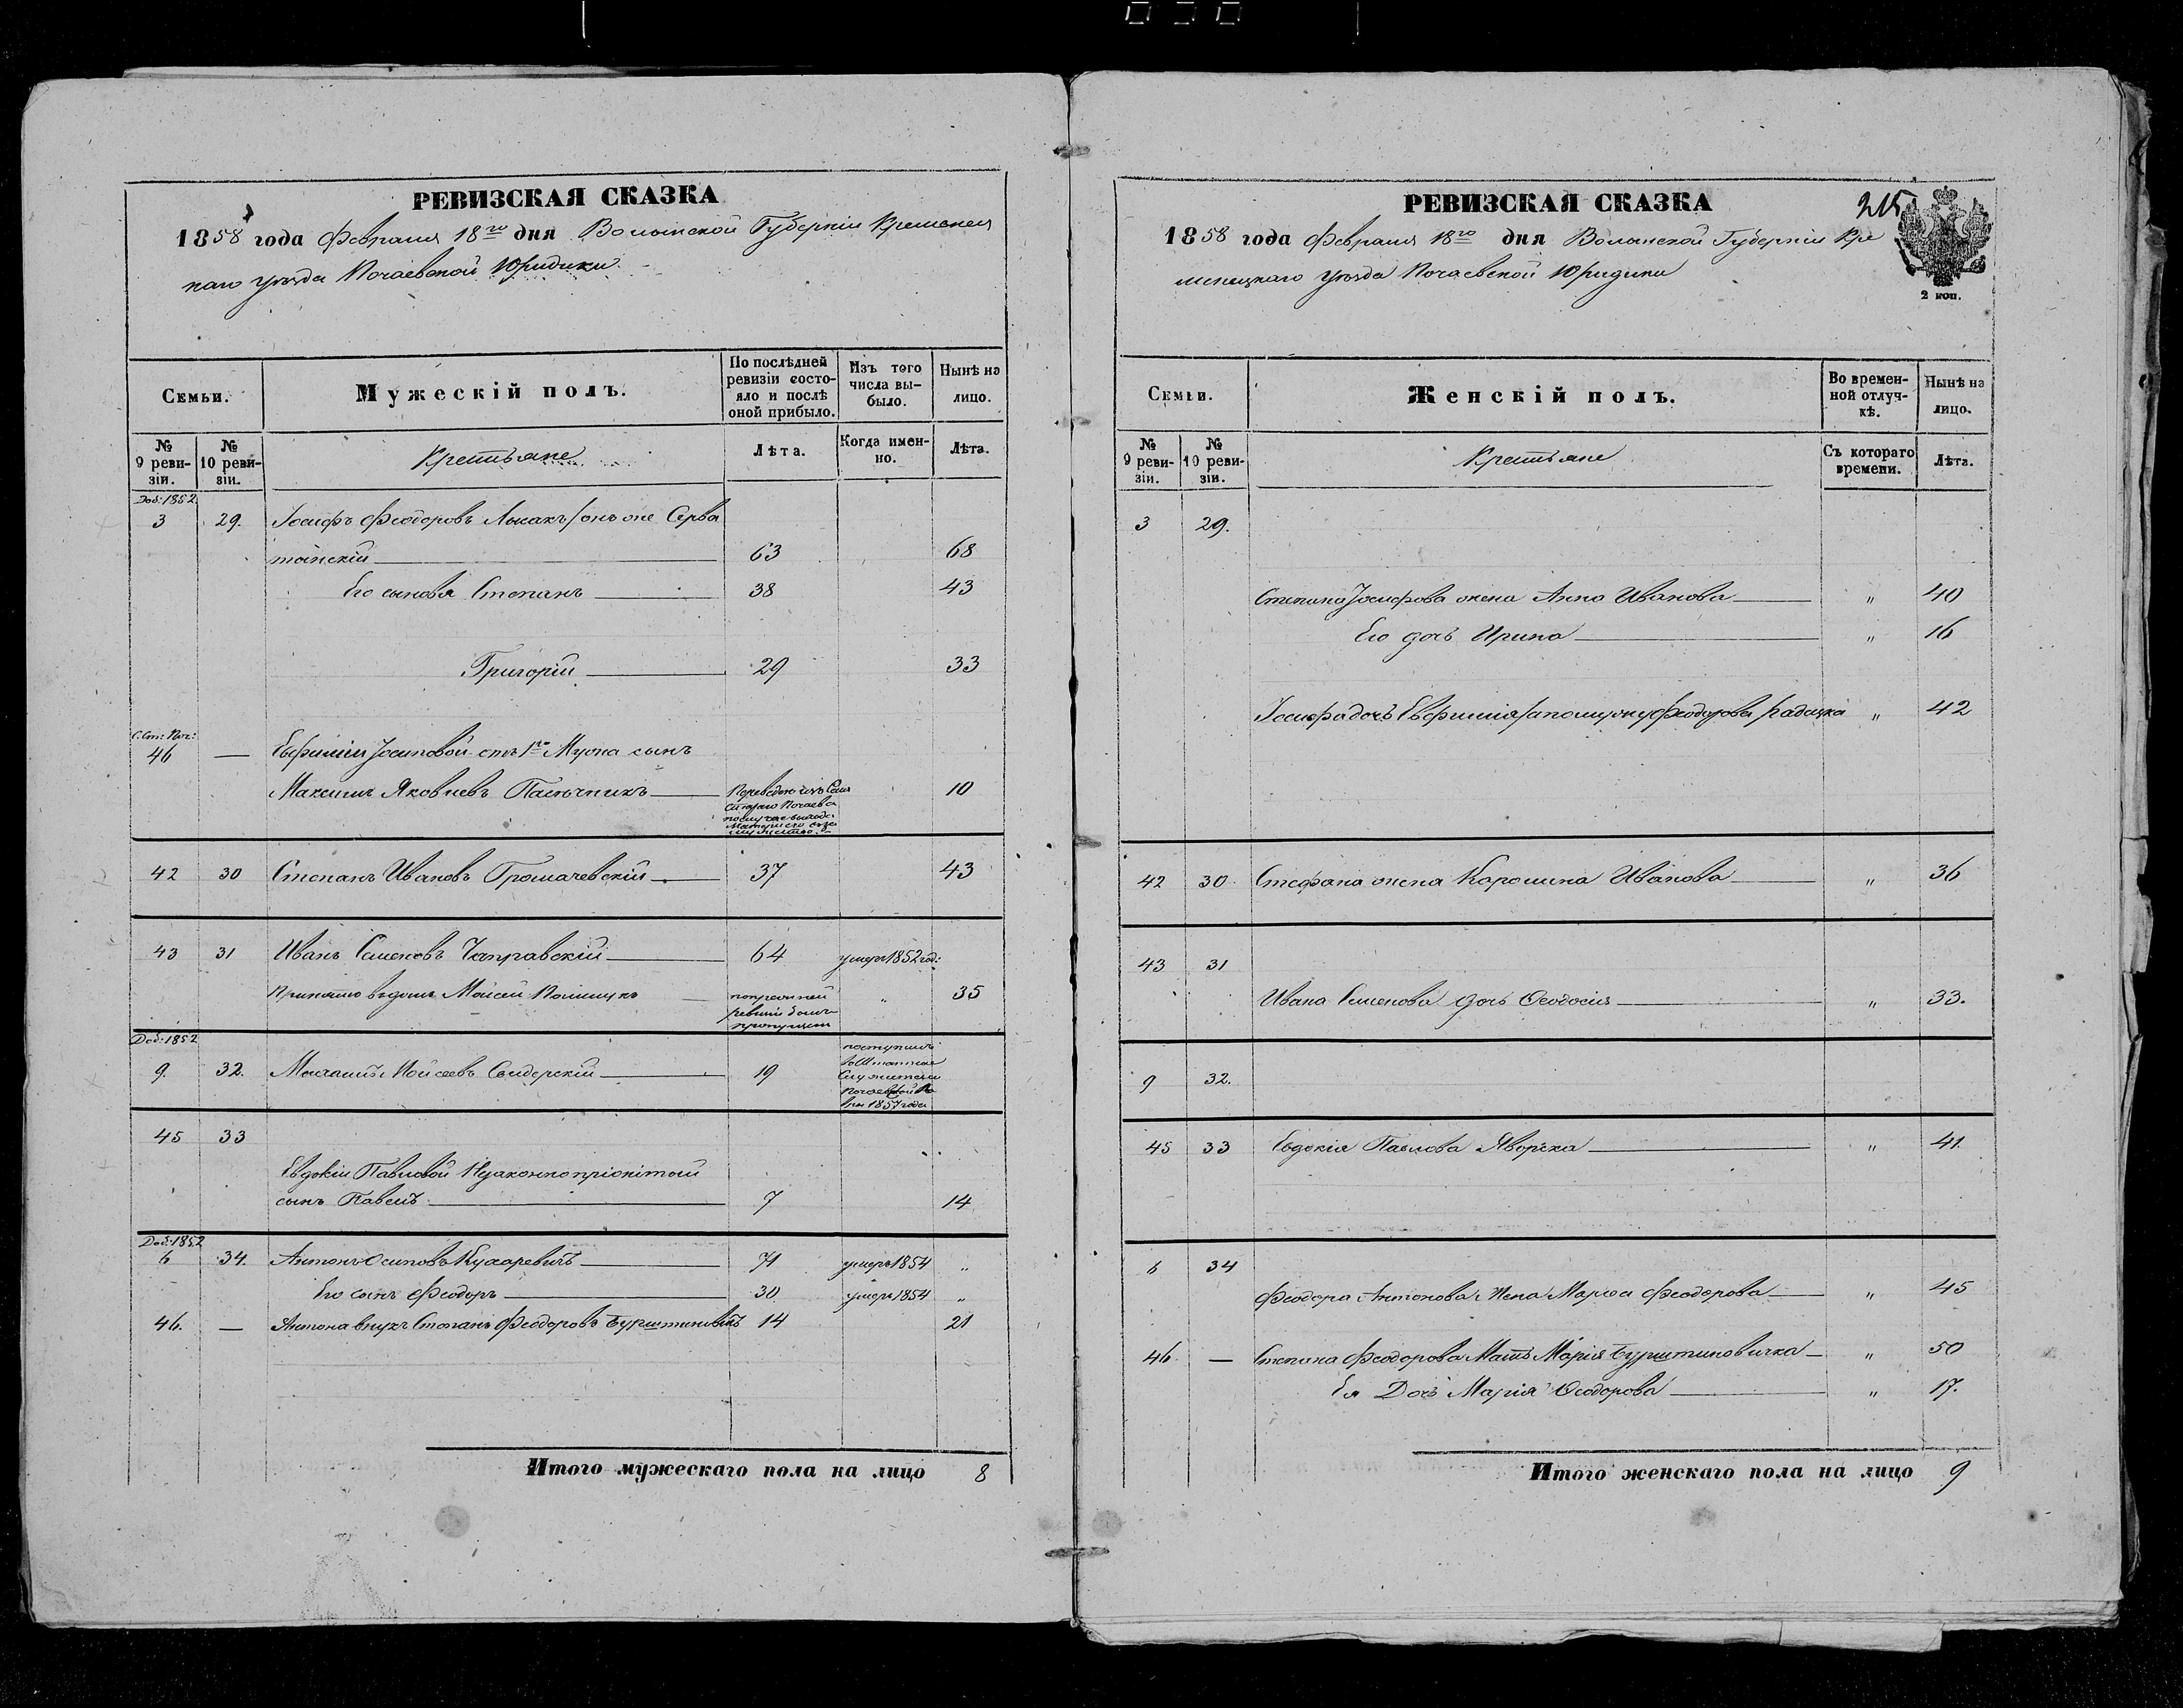 РЕВИЗСКАЯ СКАЗКА
1858 года Февраля 18го дня Волынской Губерніи Кременец
каго уѣзда Почаевской Юридики
Семьи.
Мужескій полъ.
По послѣдней ревизіи состояло и послѣ оной прибыло.
Изъ того числа выбыло.
Нынѣ на лицо.
№ 9 ревизіи.
№ 10 ревизіи.
Крестьяне
Лѣта.
Когда именно.
Лѣта.
Доб: 1852
3 29. Іосифъ Феодоровъ Лысакъ онъ же Серва
тынскій 63 68
Его сыновя Степанъ 38 43
Григорій 29 33
С. Ст: Поч:
46 — Евфиміи Іосиповой отъ 1го Мужа сынъ
Максимъ Яковлевъ Пасѣчникъ 10
42 30 Степанъ Ивановъ Громачевскій 37 43
43 31 Иванъ Семеновъ Чаправскій 64 умеръ 1852 год:
Принято въ домъ Мойсей 35
попрежней
ревизіи былъ
пропущен
Доб: 1852
9. 32. Мойсеевъ Свидерскій 19
поступилъ
въ Штатные
Служители
Почаевской Ла
вры 1857 года
45 33
Евдокіи Павловой Незаконноприжитый
сынъ Павелъ 7 14
Доб: 1852
6 34. Антонъ Осиповъ Кухаревичъ 71 умеръ 1854 „
Его сынъ Феодоръ 30 умеръ 1854 „
46. — Антона внукъ Степанъ Феодоровъ Бурштиновичъ 14 21
Итого мужескаго пола на лицо 8
РЕВИЗСКАЯ СКАЗКА
215
1858 года Февраля 18го дня Волынской Губерніи Кре
менецкаго уѣзда Почаевской Юридики
2 коп.
Семьи.
Женскій полъ.
Во временной отлучкѣ.
Нынѣ на лицо.
№ 9 ревизіи.
№ 10 ревизіи.
Крестьяне
Съ котораго времени.
Лѣта.
3 29.
Степана Іосифова жена Анна Иванова „ 40
Его дочь Ирина „ 16
Іосифа дочь Евфимія по мужу Феодорова „ 42
42 30. Стефана жена Каролина Иванова „ 36
43 31
Ивана Семенова дочь Феодосія „ 33.
9 32.
45 33 Евдокія Павлова Яворска „ 41.
6 34
Феодора Антонова Жена Марѳа Феодорова „ 45
46. — Степана Феодорова Мать Марія Бурштиновичка „ 50
Ея Дочь Марія Феодорова „ 17.
Итого женскаго пола на лицо 9